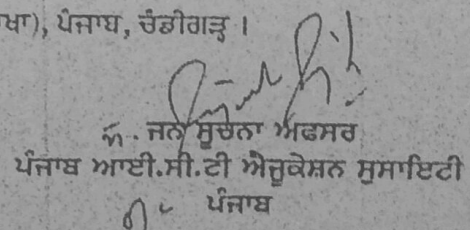 ਖਾ), ਪੰਜਾਬ, ਚੰਡੀਗੜ੍ਹ ।
ਜਨ ਸੂਚਨਾ ਅਫਸਰ
ਪੰਜਾਬ ਆਈ.ਸੀ.ਟੀ ਐਜੂਕੇਸ਼ਨ ਸੁਸਾਇਟੀ
ਪੰਜਾਬ